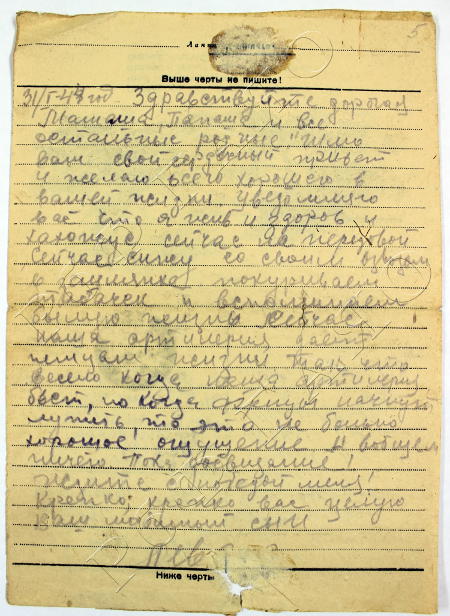 5
Выше черты не пишите!
31/I-43 год Здравствуйте дорогая
Мамаша Папаша и все
остальные родные Шлю
вам свой сердечный привет
и желаю всего хорошего в
вашей жизни. Уведомляю
вас что я жив и здоров и
нахожусь сейчас на передовой
Сейчас сижу со своим
в землянке покуриваем
табачек и вспоминаем
былую жизнь Сейчас
наша артилерия дает
жизни так что
весело когда наша артилерия
бьет, но когда фрицы начнут
лупить, то это не больно
хорошое ощущение. А вобщем
ничего Пока досвидания!
ждите с победой меня!
Крепко, крепко вас целую
ваш любимый сын
Лев
Ниже черты